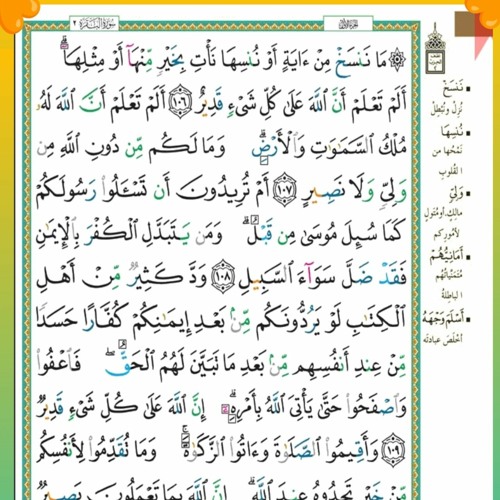 سورة البقرة ٢
الجزء الأول
۞ مَا نَنسَخْ مِنْ ءَايَةٍ أَوْ نُنسِهَا نَأْتِ بِخَيْرٍ مِّنْهَآ أَوْ مِثْلِهَآ ۗ
أَلَمْ تَعْلَمْ أَنَّ ٱللَّهَ عَلَىٰ كُلِّ شَىْءٍ قَدِيرٌ ١٠٦ أَلَمْ تَعْلَمْ أَنَّ ٱللَّهَ لَهُۥ
مُلْكُ ٱلسَّمَٰوَٰتِ وَٱلْأَرْضِ ۗ وَمَا لَكُم مِّن دُونِ ٱللَّهِ مِن
وَلِىٍّ وَلَا نَصِيرٍ ١٠٧ أَمْ تُرِيدُونَ أَن تَسْـَٔلُوا۟ رَسُولَكُمْ
كَمَا سُئِلَ مُوسَىٰ مِن قَبْلُ ۗ وَمَن يَتَبَدَّلِ ٱلْكُفْرَ بِٱلْإِيمَٰنِ
فَقَدْ ضَلَّ سَوَآءَ ٱلسَّبِيلِ ١٠٨ وَدَّ كَثِيرٌ مِّنْ أَهْلِ
ٱلْكِتَٰبِ لَوْ يَرُدُّونَكُم مِّنۢ بَعْدِ إِيمَٰنِكُمْ كُفَّارًا حَسَدًا
مِّنْ عِندِ أَنفُسِهِم مِّنۢ بَعْدِ مَا تَبَيَّنَ لَهُمُ ٱلْحَقُّ ۖ فَٱعْفُوا۟
وَٱصْفَحُوا۟ حَتَّىٰ يَأْتِىَ ٱللَّهُ بِأَمْرِهِۦٓ ۗ إِنَّ ٱللَّهَ عَلَىٰ كُلِّ شَىْءٍ قَدِيرٌ
١٠٩ وَأَقِيمُوا۟ ٱلصَّلَوٰةَ وَءَاتُوا۟ ٱلزَّكَوٰةَ ۚ وَمَا تُقَدِّمُوا۟ لِأَنفُسِكُم
مِّنْ خَيْرٍ تَجِدُوهُ عِندَ ٱللَّهِ ۗ إِنَّ ٱللَّهَ بِمَا تَعْمَلُونَ بَصِيرٌ
نَنسَخْ
نُزِلْ ونُبطِلْ
نُنسِهَا
نَمْحُها من
القلوب
وَلِيٍّ
مالِكٍ أو مُتَولٍّ
لأموركم
أَمَانِيُّهُمْ
مُتَمَنَّياتُهُم
الباطلة
أَسْلَمَ وَجْهَهُ
أَخْلَصَ عبادته